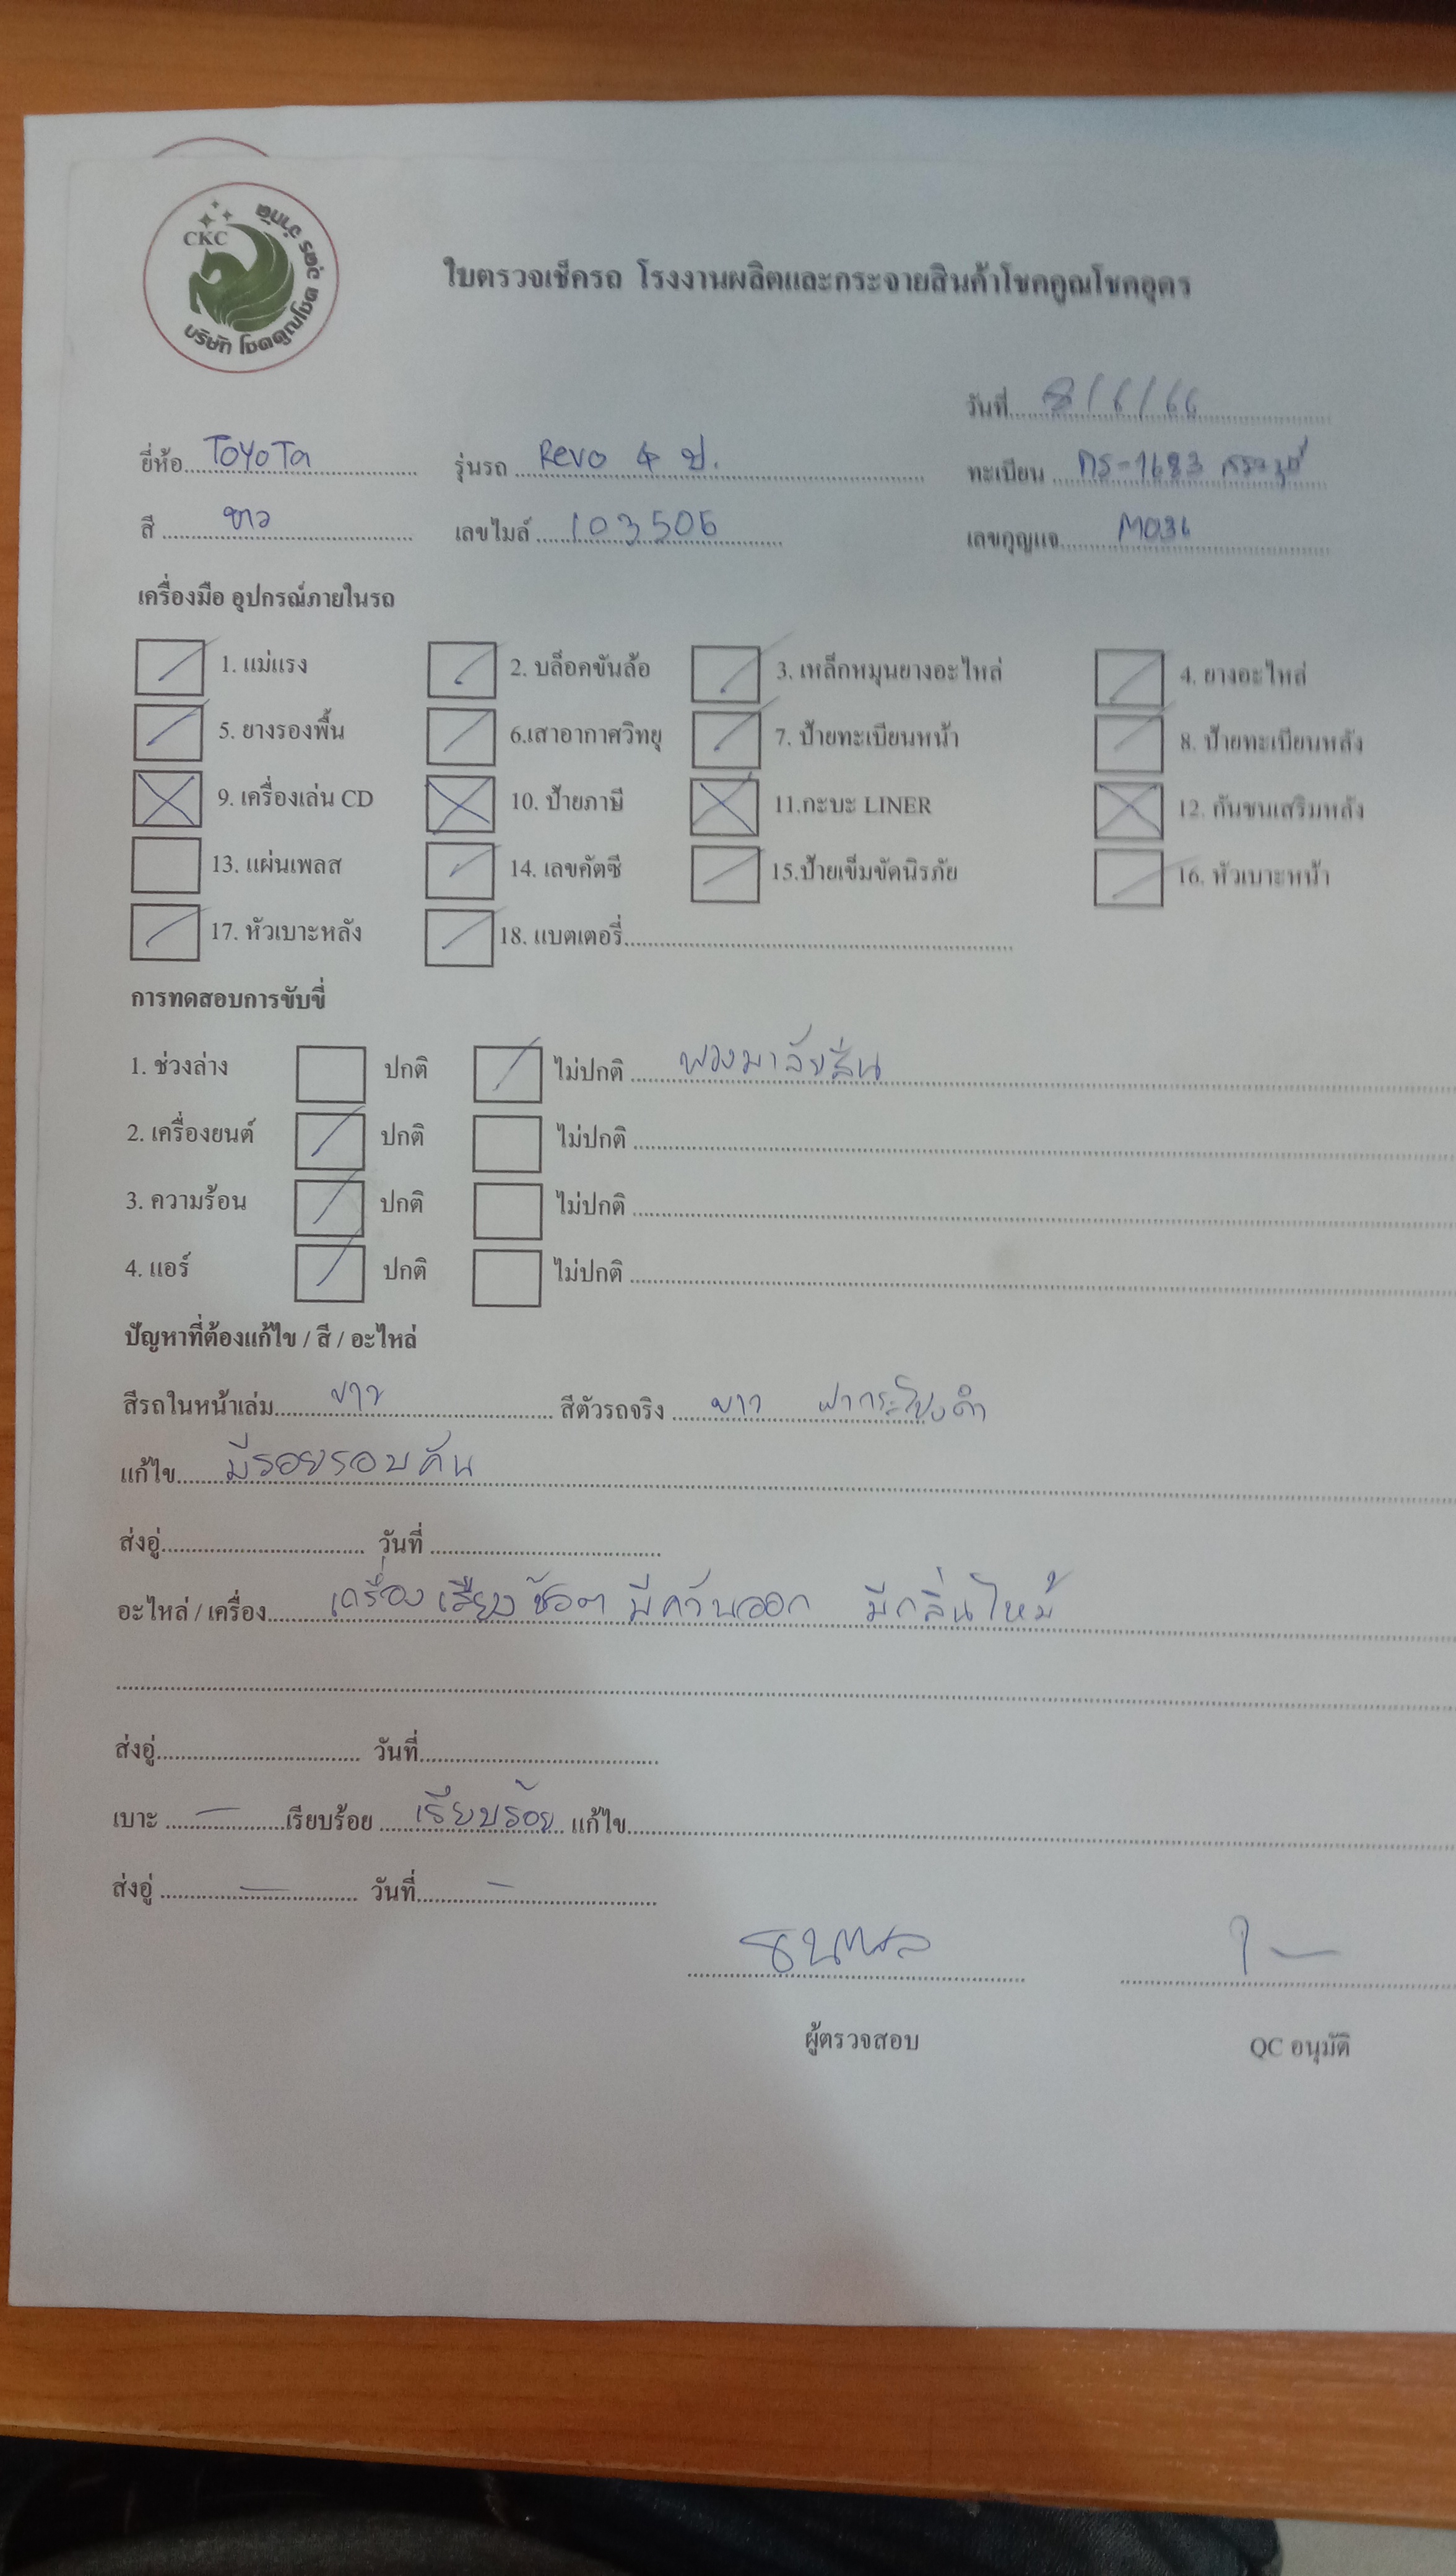 CKC
บริษัท โชคคูณโชค อุดร จำกัด
ใบตรวจเช็ครถ โรงงานผลิตและกระจายสินค้าโชคคูณโชคอุดร
วันที่ 8/6/66
ยี่ห้อ ToyoTa รุ่นรถ Revo 4 ป. ทะเบียน 1683 สระบุรี
สี ขาว เลขไมล์ 103506 เลขกุญแจ M036
เครื่องมือ อุปกรณ์ภายในรถ
1. แม่แรง 2. บล็อคขันล้อ 3. เหล็กหมุนยางอะไหล่ 4. ยางอะไหล่
5. ยางรองพื้น 6.เสาอากาศวิทยุ 7. ป้ายทะเบียนหน้า 8. ป้ายทะเบียนหลัง
9. เครื่องเล่น CD 10. ป้ายภาษี 11.กะบะ LINER 12. กันชนเสริมหลัง
13. แผ่นเพลส 14. เลขคัตซี 15.ป้ายเข็มขัดนิรภัย 16. หัวเบาะหน้า
17. หัวเบาะหลัง 18. แบตเตอรี่
การทดสอบการขับขี่
1. ช่วงล่าง ปกติ ไม่ปกติ พวงมาลัยสั่น
2. เครื่องยนต์ ปกติ ไม่ปกติ
3. ความร้อน ปกติ ไม่ปกติ
4. แอร์ ปกติ ไม่ปกติ
ปัญหาที่ต้องแก้ไข / สี / อะไหล่
สีรถในหน้าเล่ม ขาว สีตัวรถจริง ขาว ฝากระโปงดำ
แก้ไข มีรอยรอบคัน
ส่งอู่ วันที่
อะไหล่ / เครื่อง เครื่อง เสียง ช้อต มีควันออก มีกลิ่นไหม้
ส่งอู่ วันที่
เบาะ เรียบร้อย เรียบร้อย แก้ไข
ส่งอู่ วันที่
ผู้ตรวจสอบ QC อนุมัติ